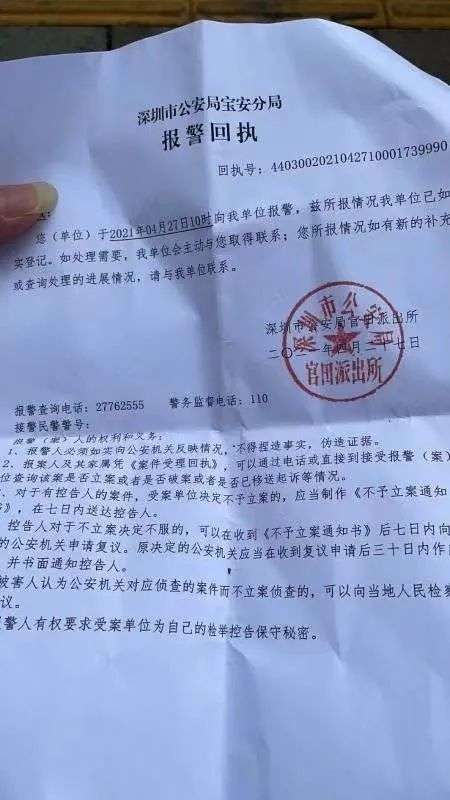 深圳市公安局宝安分局
报警回执
回执号：4403002021042710001739990
：
您（单位）于2021年04月27日10时向我单位报警，兹所报情况我单位已如
实登记。如处理需要，我单位会主动与您取得联系；您所报情况如有新的补充
或查询处理的进展情况，请与我单位联系。
深圳市公安局官田派出所
二〇二一年四月二十七日
深圳市公安局
官田派出所
报警查询电话：27762555 警务监督电话：110
接警民警警号：
报警（案）人的权利和义务：
1、报警人必须如实向公安机关反映情况，不得捏造事实，伪造证据。
2、报案人及其家属凭《案件受理回执》，可以通过电话或直接到接受报警（案）
位查询该案是否立案或者是否破案或者是否已移送起诉等情况。
、对于有控告人的案件，受案单位决定不予立案的，应当制作《不予立案通知
书》，在七日内送达控告人。
控告人对于不立案决定不服的，可以在收到《不予立案通知书》后七日内向
的公安机关申请复议。原决定的公安机关应当在收到复议申请后三十日内作
，并书面通知控告人。
被害人认为公安机关对应侦查的案件而不立案侦查的，可以向当地人民检察
议。
报警人有权要求受案单位为自己的检举控告保守秘密。